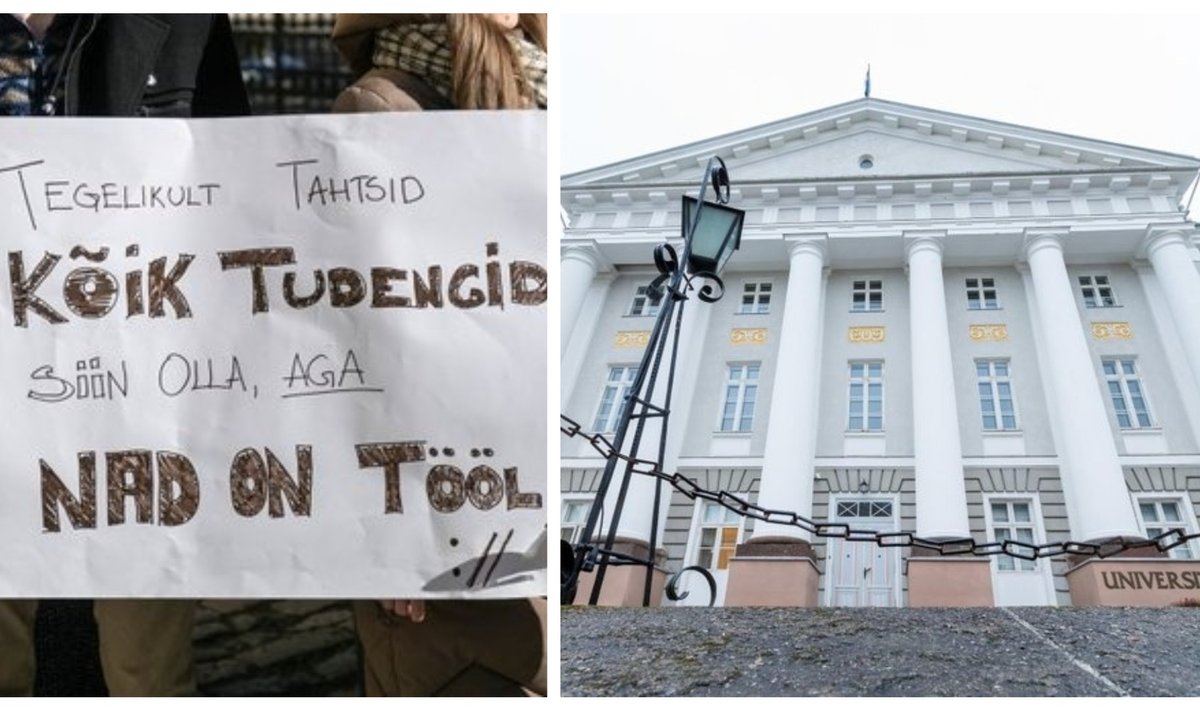 TEGELIKULT TAHTSID
KÕIK TUDENGID
SIIN OLLA, AGA
NAD ON TÖÖL
://
809
UNIVERSI